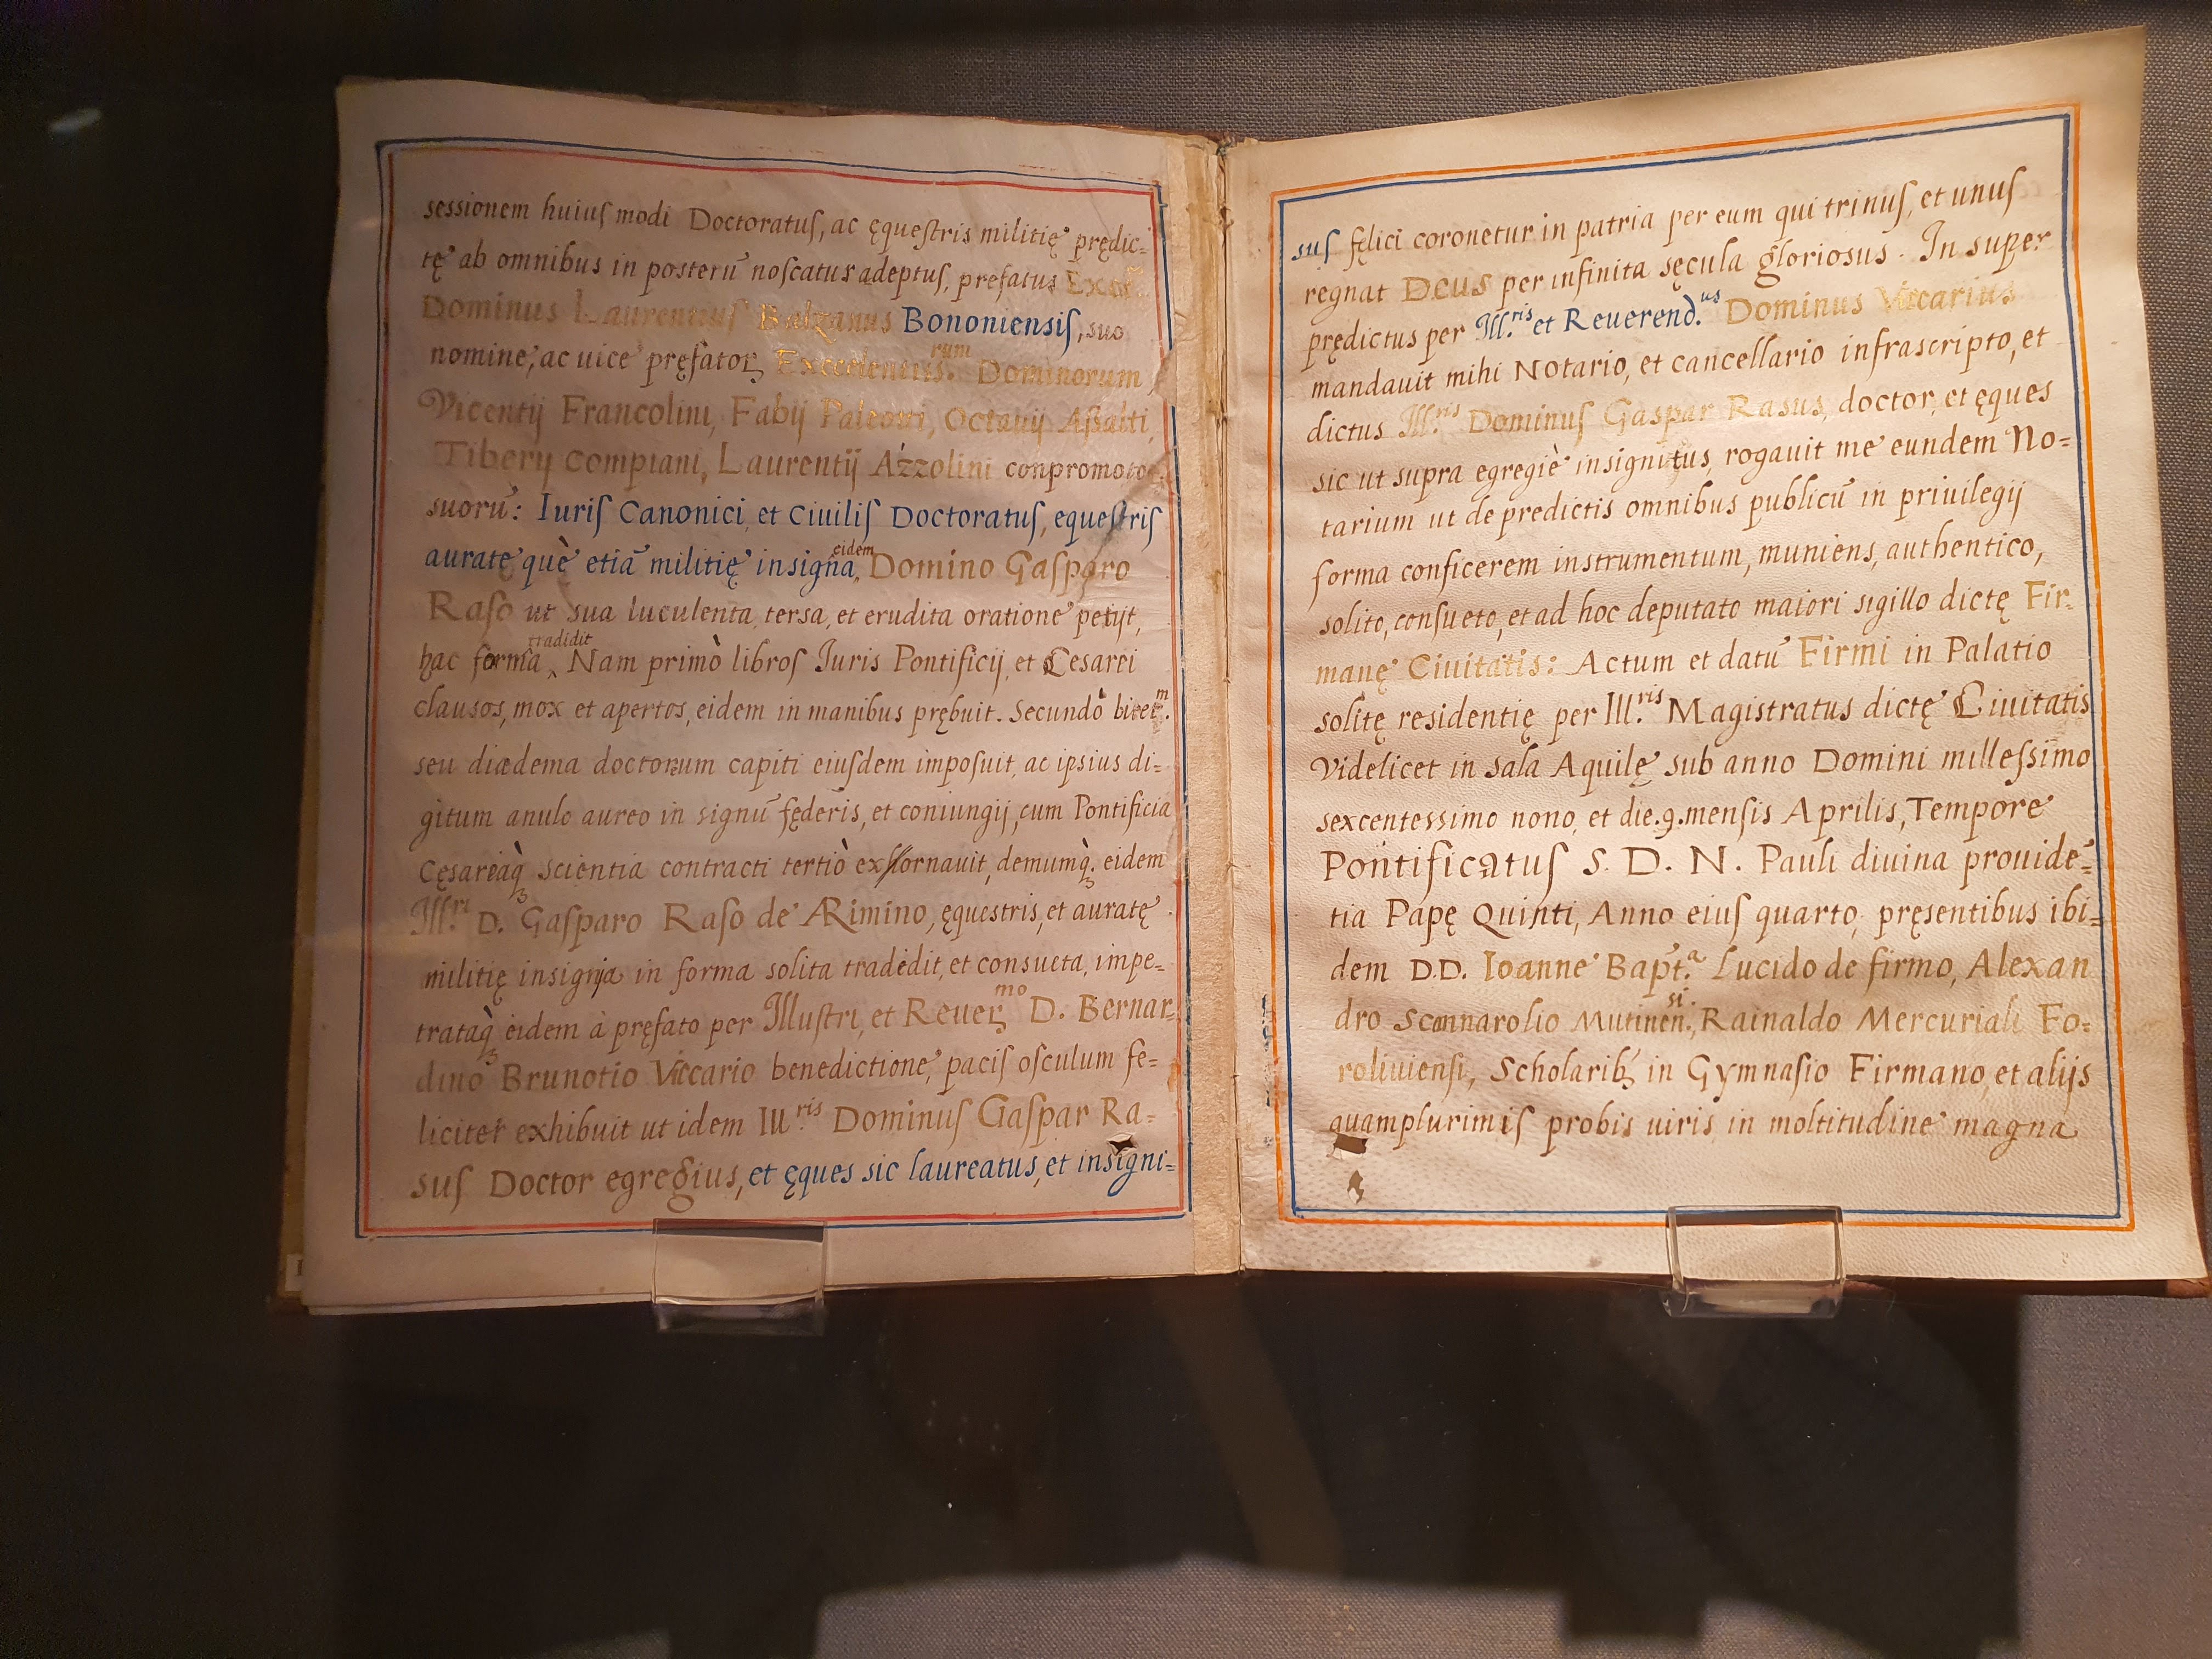 sessionem huius modi Doctoratus, ac ęquestris militię prędic=
tę ab omnibus in posterũ noscatur adeptus, prefatus
Dominus Laurentius Balzanus Bononiensis, suo
nomine, ac uice pręfatoꝝ Excelentiss.rum Dominorum
Vicentij Francolini, Fabij Paleotti, Octauij Assalti,
Tiberij Compiani, Laurentij Azzolini conpromoto
suorũ: Iuris Canonici, et Ciuilis Doctoratus, equestris
auratę què etiã militię insigna, eidem Domino Gasparo
Raso ut sua luculenta, tersa, et erudita oratione petijt,
hac forma tradidit. Nam primò libros Iuris Pontificij, et Cesarei
clausos, mox et apertos, eidem in manibus prębuit. Secundò biret.m
seu diædema doctorum capiti eiusdem imposuit, ac ipsius di=
gitum anulo aureo in signũ fęderis, et coniungij, cum Pontificia
Cęsareaq̀ꝫ scientia contracti tertiò exornauit, demumq̀ꝫ. eidem
Ill.ri D. Gasparo Raso de Arimino, ęquestris, et auratę
militię insignia in forma solita tradedit, et consueta, impe=
trataq̀ꝫ eidem à pręfato per Illustri, et Reueꝝ.mo D. Bernar=
dino Brunotio Viccario benedictione, pacis osculum fe=
liciter exhibuit ut idem Ill.ris Dominus Gaspar Ra=
sus Doctor egregius, et ęques sic laureatus, et insigni=
sus fęlici coronetur in patria per eum qui trinus, et unus
regnat Deus per infinita sęcula gloriosus. In super
prędictus per Ill.ris et Reuerend.us Dominus Viccarius
mandauit mihi Notario, et cancellario infrascripto, et
dictus Ill.ris Dominus Gaspar Rasus, doctor, et ęques
sic ut supra egregiè insignitus, rogauit me eundem No=
tarium ut de predictis omnibus publicũ in priuilegij
forma conficerem instrumentum, muniens, authentico,
solito, consueto, et ad hoc deputato maiori sigillo dictę Fir=
manę Ciuitatis: Actum et datũ Firmi in Palatio
solitę residentię per Ill.ris Magistratus dictę Ciuitatis
Videlicet in sala Aquilę sub anno Domini millessimo
sexcentessimo nono, et die .9. mensis Aprilis, Tempore
Pontificatus S. D. N. Pauli diuina prouidẽ=
tia Papę Quinti, Anno eius quarto, pręsentibus ibi=
dem D.D. Ioanne Bapt.a Lucido de firmo, Alexan
dro Scannarolio Mutinen.si, Rainaldo Mercuriali Fo=
roliuiensi, Scholaribꝫ in Gymnasio Firmano, et alijs
quamplurimis probis uiris in moltitudine magna